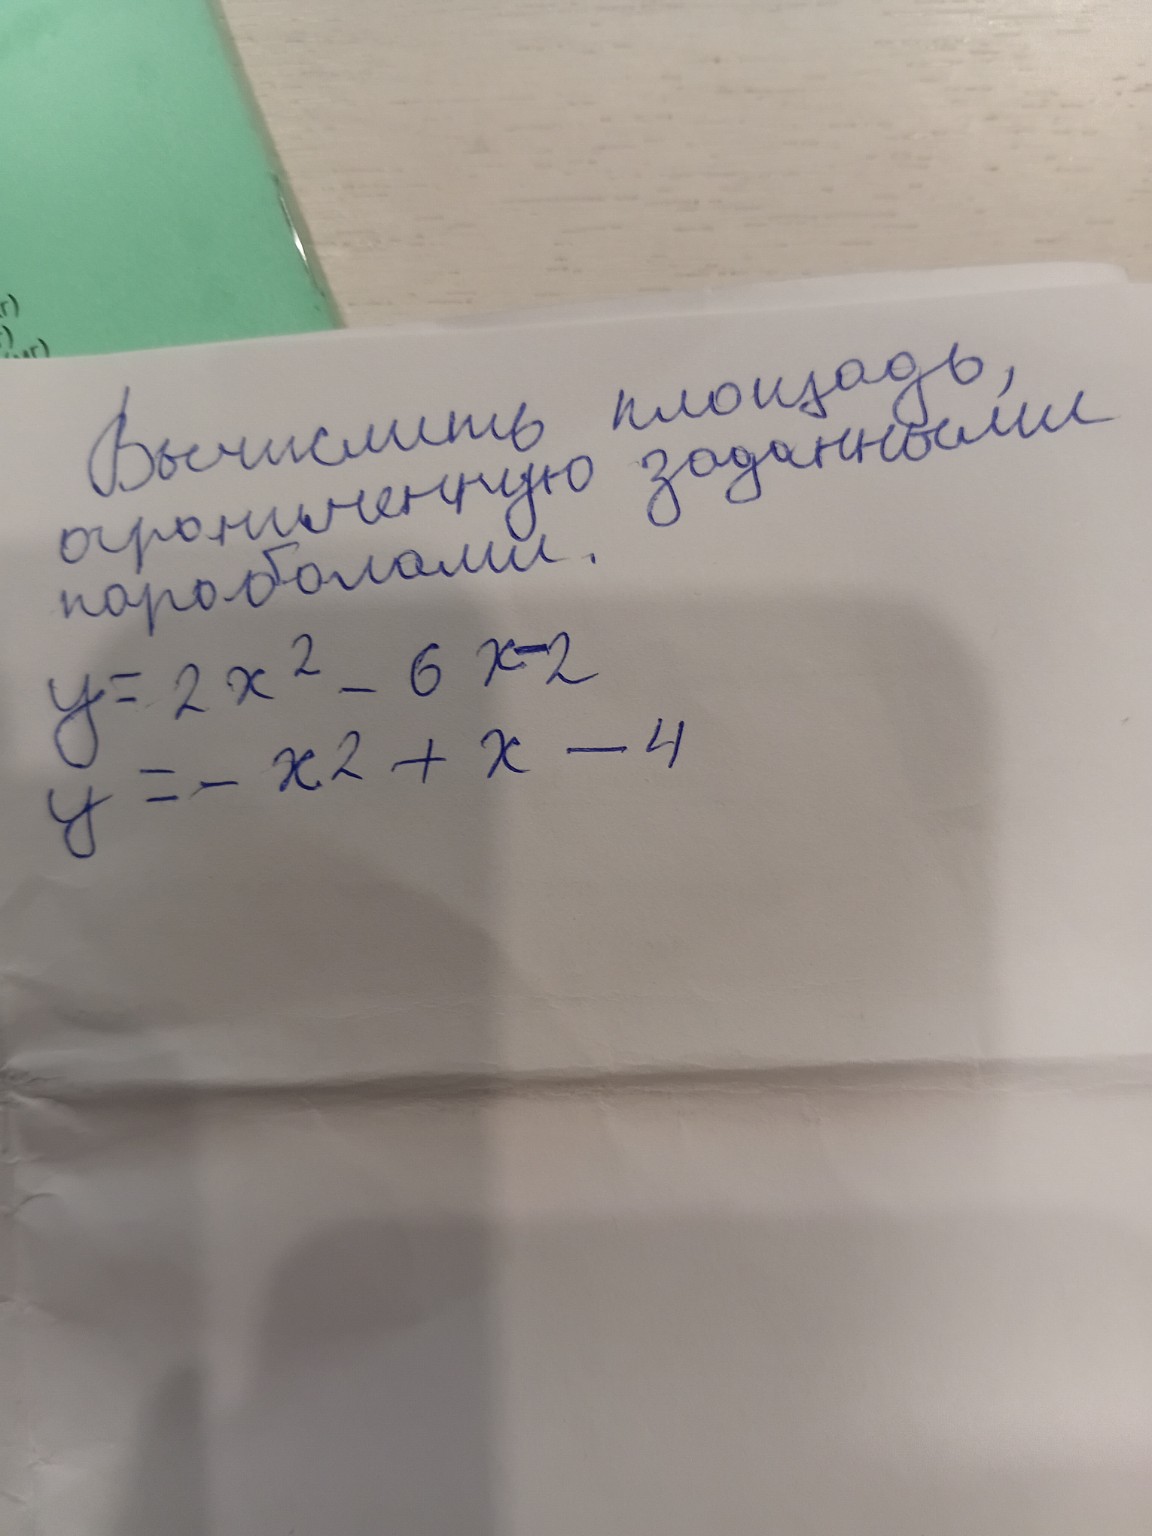 г)
г)
(мг)
Вычислить площадь,
ограниченную заданными
пораболами.
y = 2x² - 6x-2
y = - x2 + x - 4